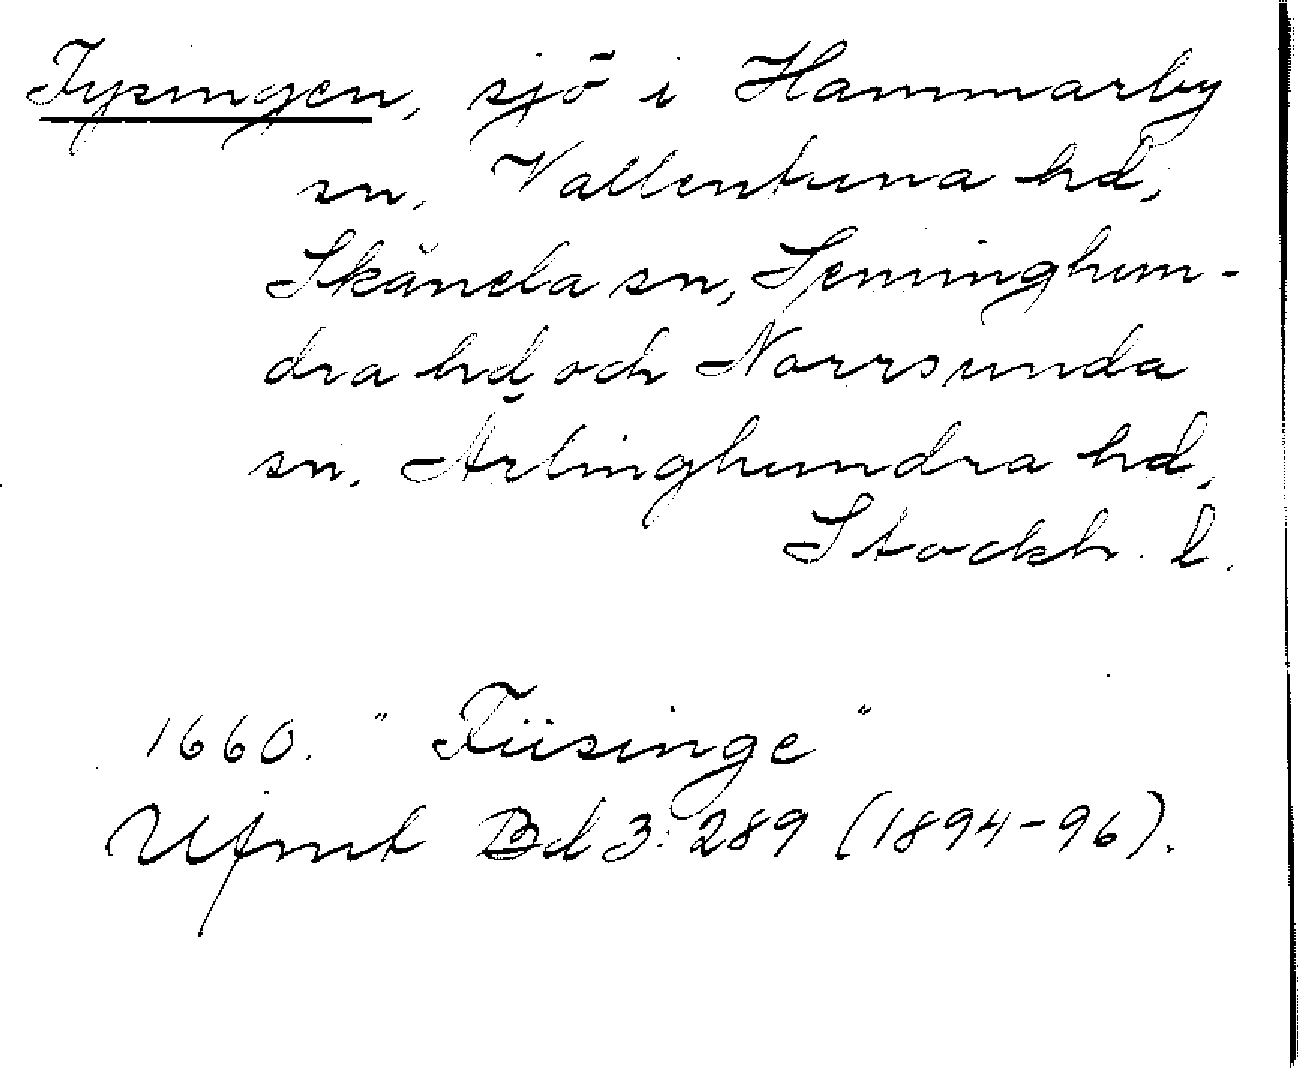 Fysingen, sjö i Hammarby
sn, Vallentuna hd,
Skånela sn, Seminghun-
dra hd och Norrsunda
sn, Ärlinghundra hd,
Stockh. l.
1660. "Fiisinge"
Ufmt Bd 3: 289 (1894-96).